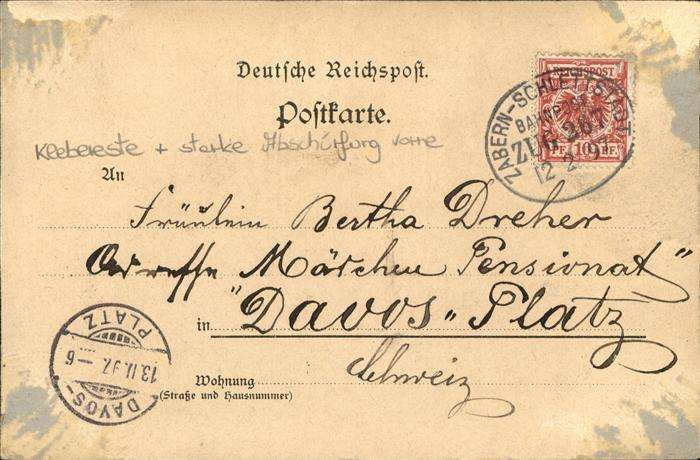 Deutsche Reichspost.
Postkarte.
REICHSPOST
PF 10 PF.
ZABERN-SCHLETTSTADT
BAHNPOST
ZUG 267
12 2 9
Klebereste + starke Abschürfung vorne
An
Fräulein Bertha Dreher
Adresse Mädchen Pensionat"
in "Davos" Platz
Schweiz
Wohnung
(Straße und Hausnummer)
DAVOS-PLATZ
13.II.97.-6